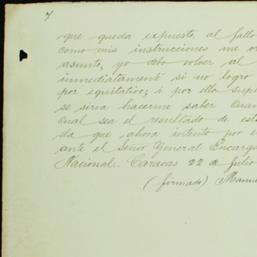 7
que queda expuesto, al fallo
como mis instrucciones me or
asunto, yo debo volver al
inmediatamente si no logro
por equitativo; i por ello supl
se sirva hacerme saber cuan
cual sea el resultado de est
da que ahora intento por el
ante el Señor General Encarg
Nacional. Caracas 22 de Julio
(firmado) Manue